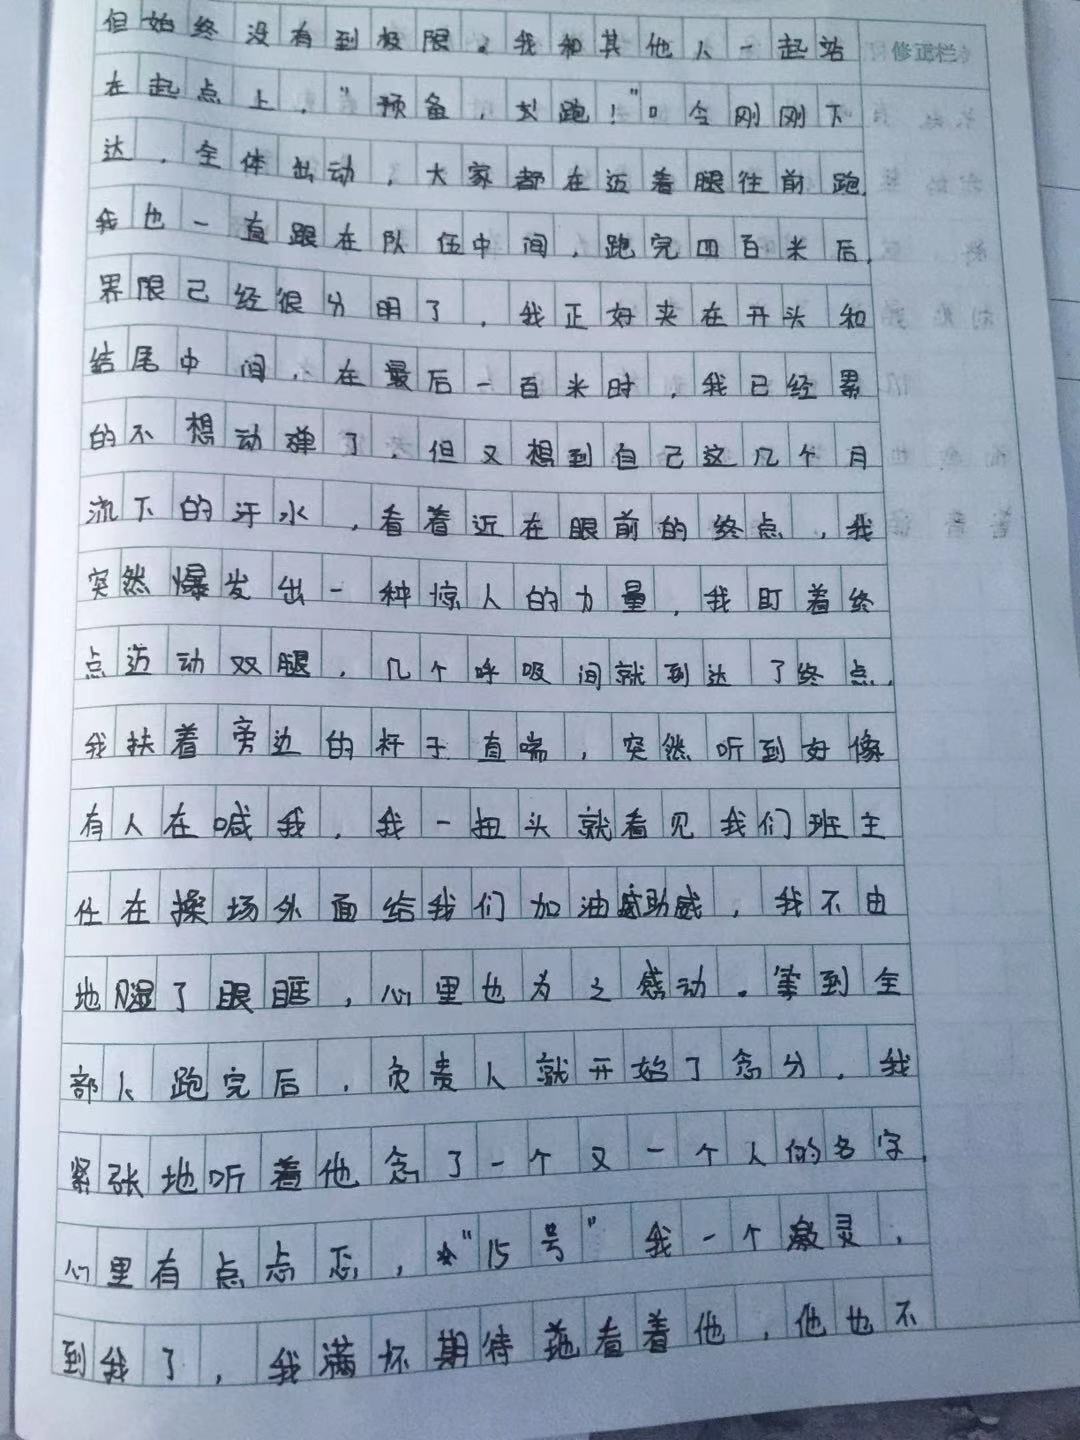 但始终没有到极限。我和其他人一起站
修正栏
在起点上，“预备，跑！”口令刚刚下
达，全体出动，大家都在迈着腿往前跑，
我也一直跟在队伍中间，跑完四百米后，
界限已经很分明了，我正好夹在开头和
结尾中间，在最后一百米时，我已经累
的不想动弹了，但又想到自己这几个月
流下的汗水，看着近在眼前的终点，我
突然爆发出一种惊人的力量，我盯着终
点迈动双腿，几个呼吸间就到达了终点，
我扶着旁边的杆子直喘，突然听到好像
有人在喊我，我一扭头就看见我们班主
任在操场外面给我们加油助威，我不由
地湿了眼眶，心里也为之感动。等到全
部人跑完后，负责人就开始了念分，我
紧张地听着他念了一个又一个人的名字，
心里有点忐忑，“15号”我一个激灵，
到我了，我满怀期待地看着他，他也不